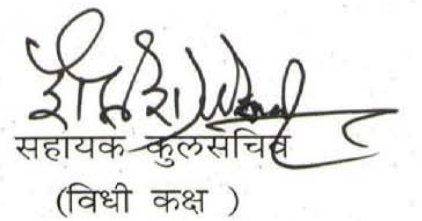 सहायक कुलसचिव
(विधी कक्ष )